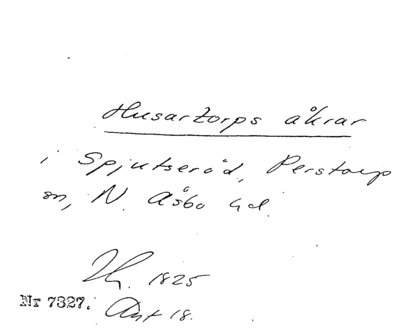 Husartorps åkrar
i Spjutseröd, Perstorp
sn, N. Åsbo hd.
1825
Nr 7327. Akt 18.